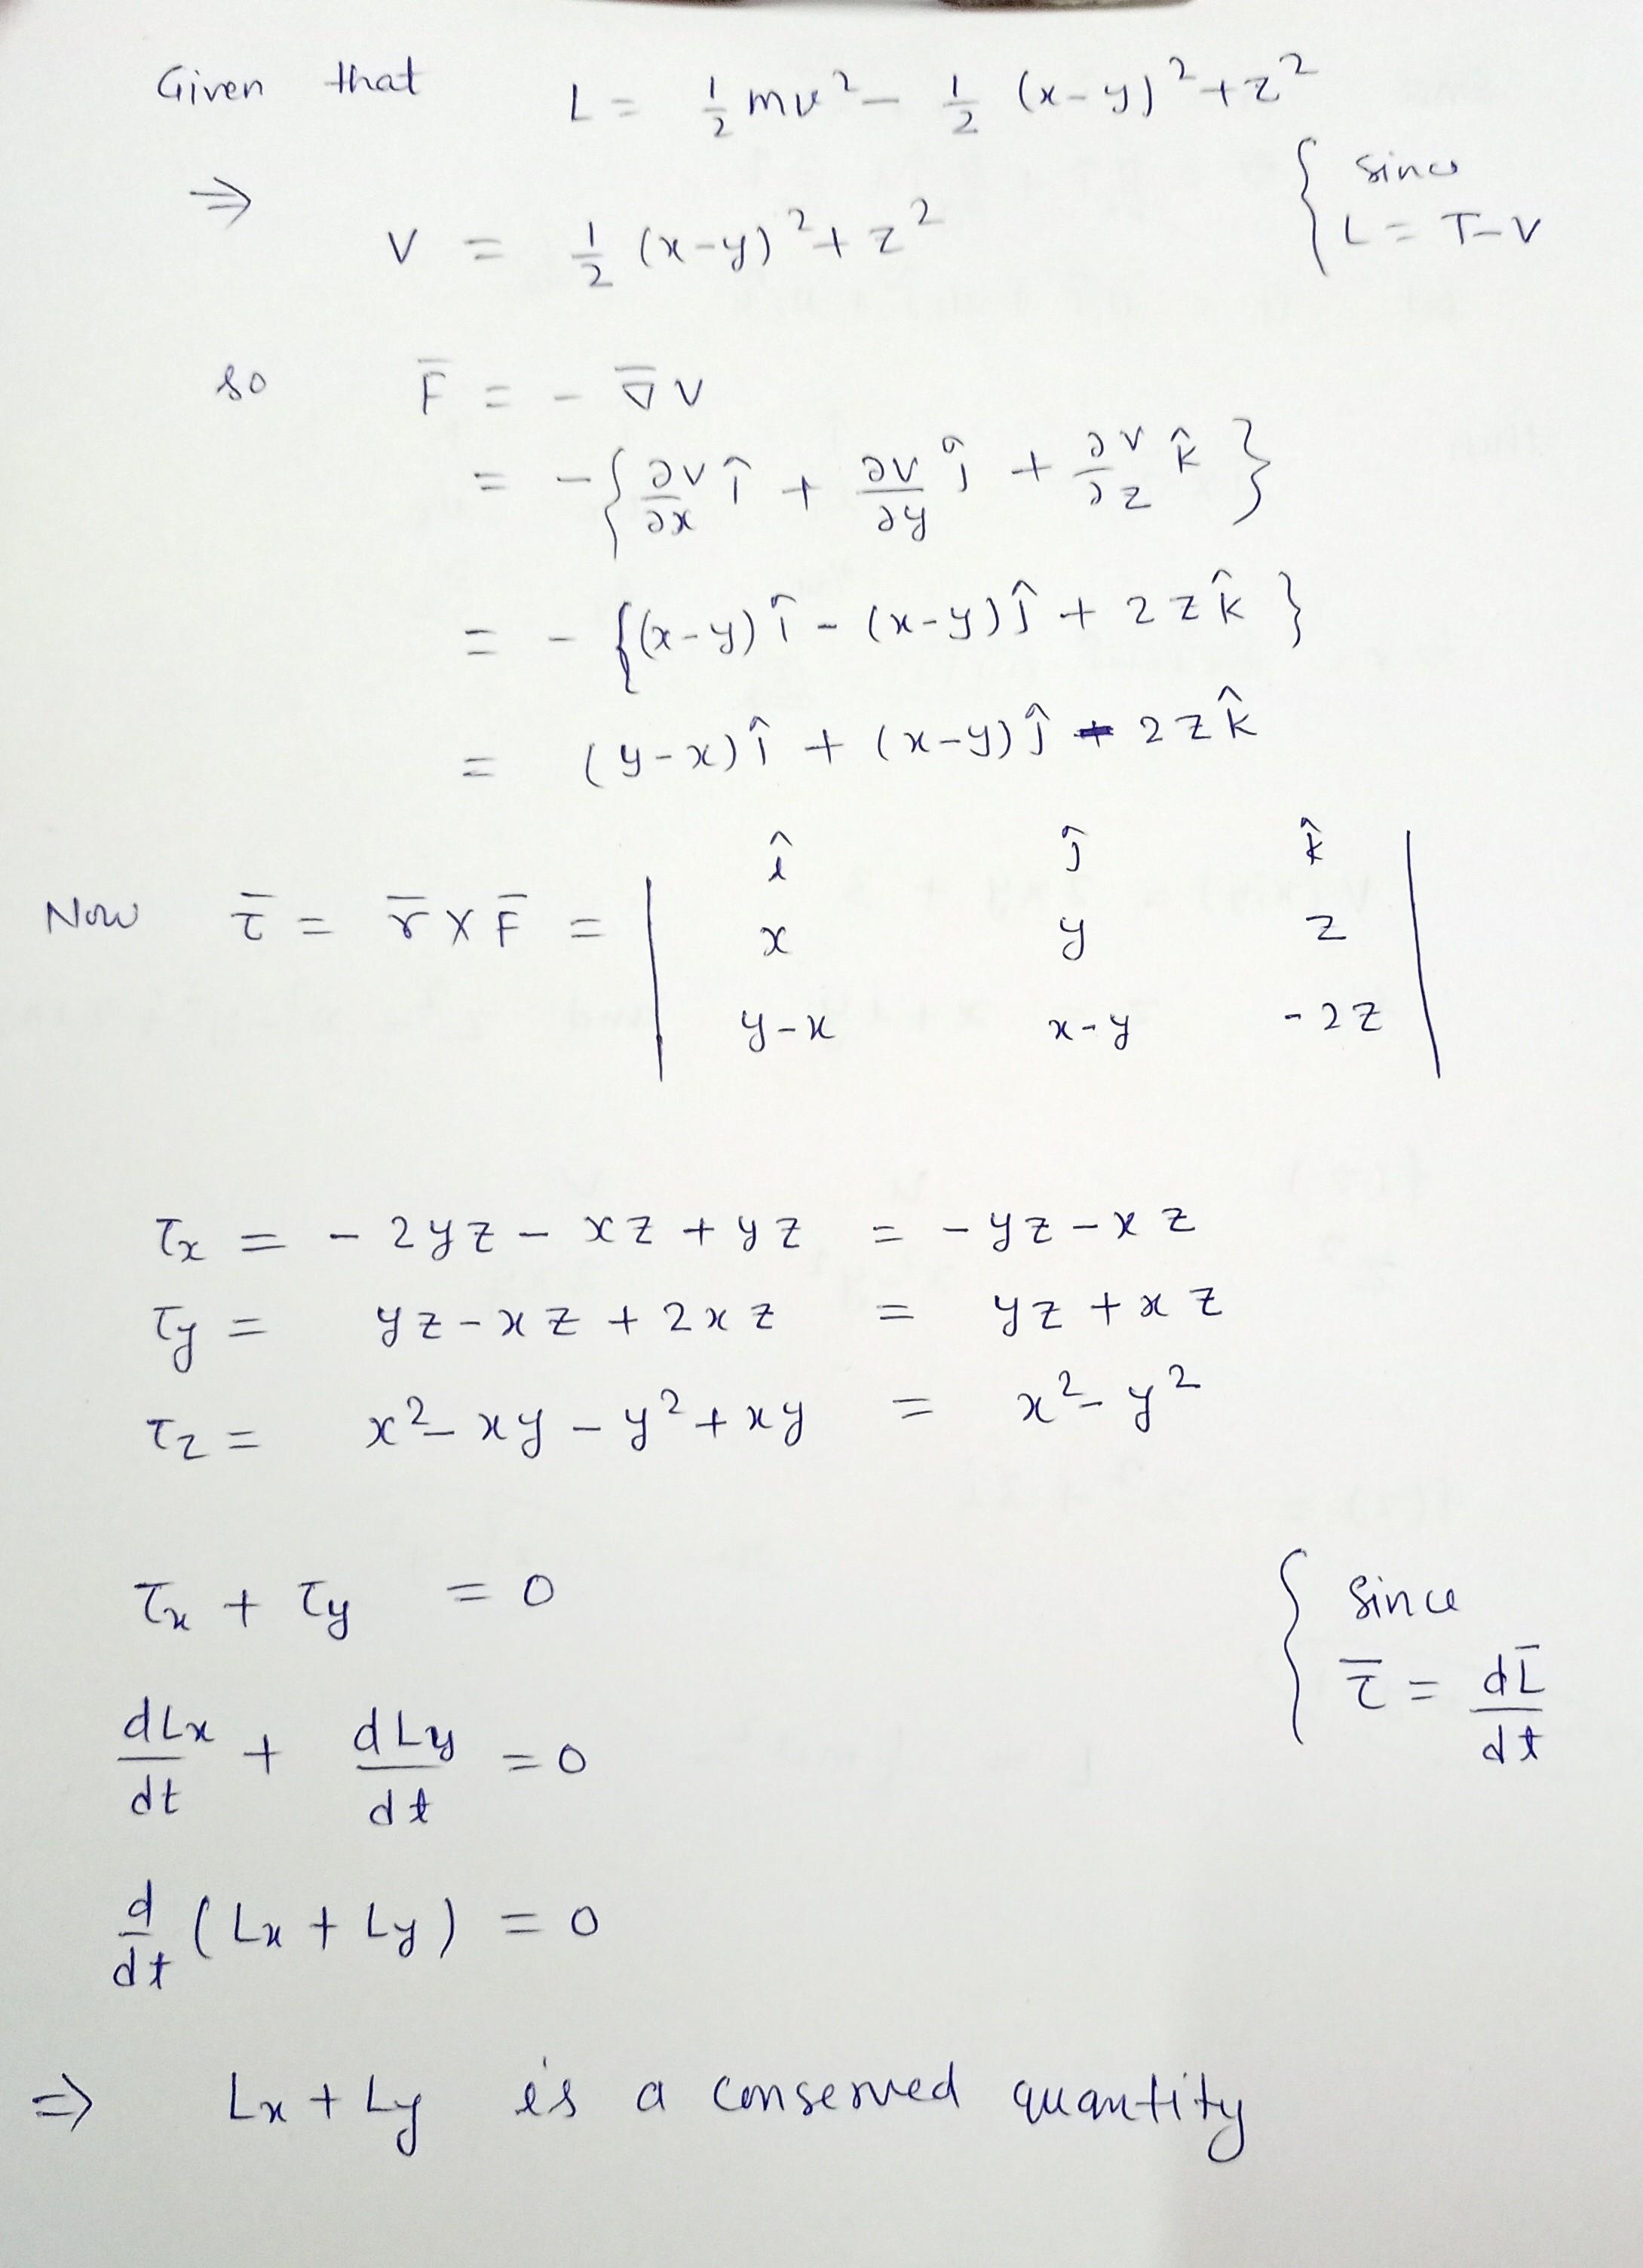 Given that L = 1/2 mv² – 1/2 (x-y)²+z²
⇒ V = 1/2 (x-y)²+z² { since L = T-V
so F̄ = - ∇̄V
= -{∂V/∂x î + ∂V/∂y ĵ + ∂V/∂z k̂}
= - {(x-y) î - (x-y) ĵ + 2zk̂}
= (y-x) î + (x-y) ĵ - 2zk̂
Now τ̄ = r̄ × F̄ = | î ĵ k̂
x y z
y-x x-y -2z |
τx = - 2yz - xz + yz = - yz - xz
τy = yz - xz + 2xz = yz + xz
τz = x² - xy - y² + xy = x² - y²
τx + τy = 0 { since τ̄ = dL̄/dt
dLx/dt + dLy/dt = 0
d/dt (Lx + Ly) = 0
⇒ Lx + Ly is a conserved quantity